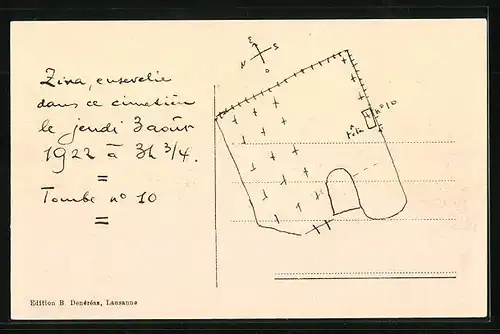 Zina, ensevelie
dans ce cimetière
le jeudi 3 août
1922 à 3h 3/4.
=
Tombe no 10
=
E
N S
O
no 10
tête
Edition B. Denéréaz, Lausanne